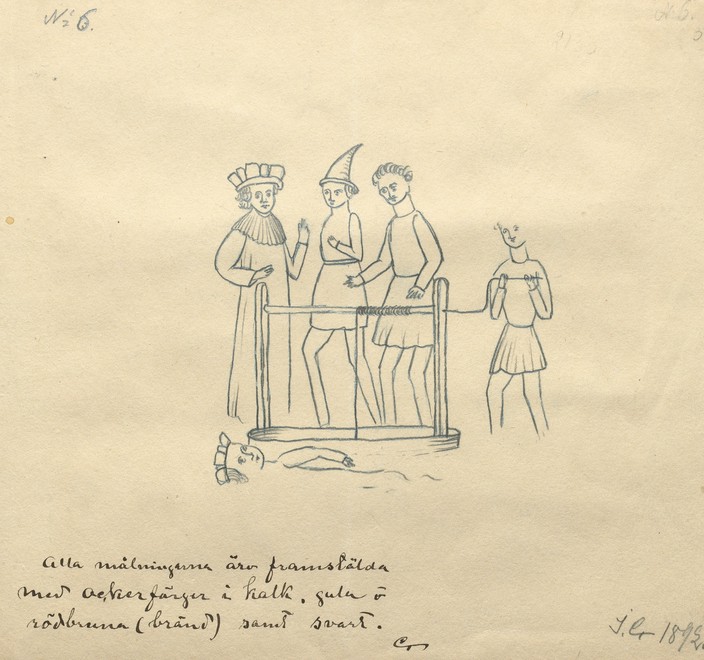 No 6.
Alla målningarna äro framstälda
med ockerfärger i kalk, gula o
rödbruna (bränd) samt svart.